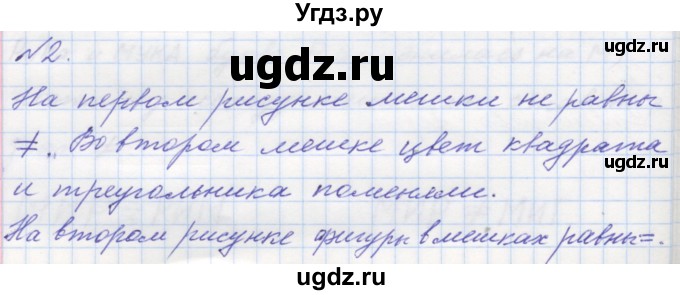 Угдз.ру
ugdz.ru
№2.
На первом рисунке мешки не равны
≠. Во втором мешке цвет квадрата
и треугольника поменяли.
На втором рисунке фигуры в мешках равны =.
ugdz.ru
ugdz.ru